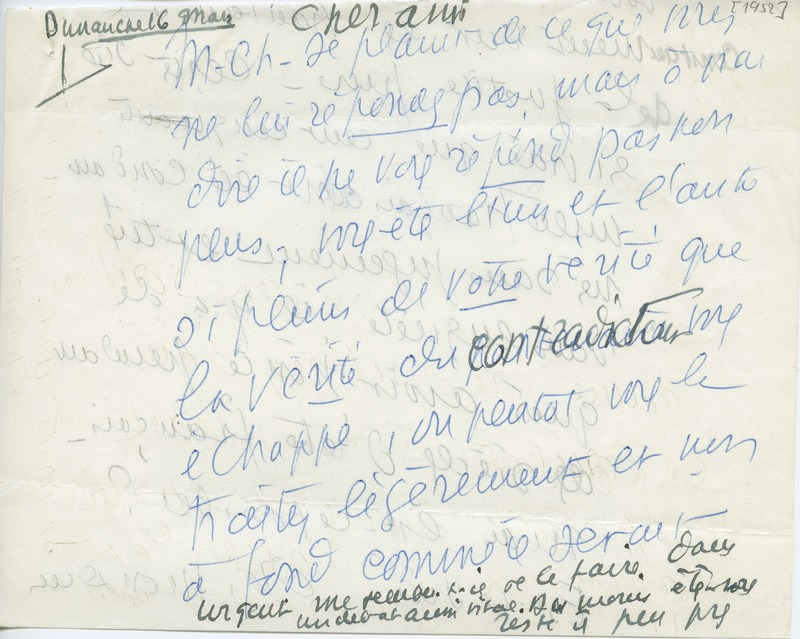 Dimanche 16 Mars
cher ami [1952]
M-Ch- se plaint de ce que vous
ne lui répondez pas, mais à vrai
dire il ne vous répond pas non
plus, vous êtes l'un et l'autre
si pleins de votre vérité que
la vérité du contradicteur vous
échappe, ou plutôt vous le
traitez légèrement et non
à fond comme il serait
urgent me semble-t-il de le faire dans
un débat aussi vital. Du moins êtes-vous
resté à peu près